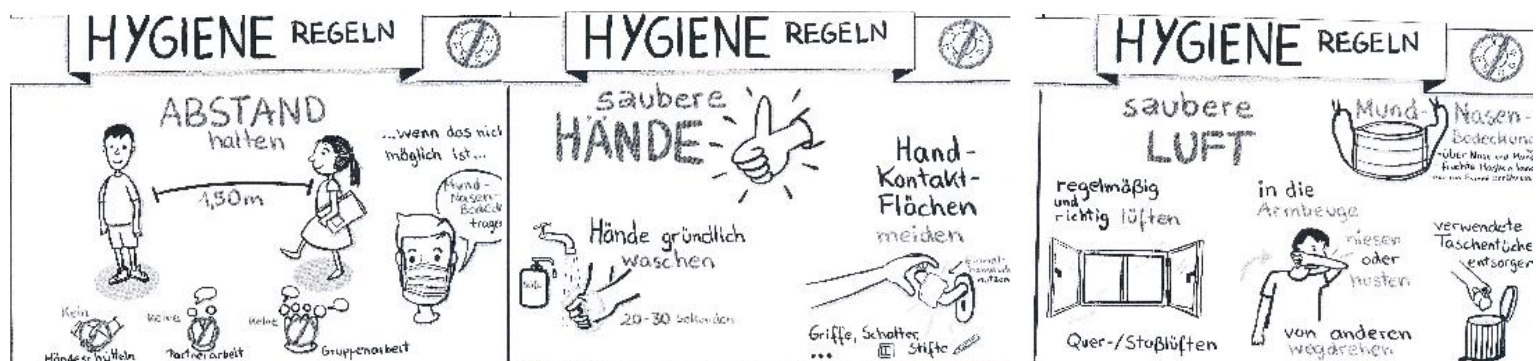 HYGIENE REGELN
ABSTAND
halten
1,50m
...wenn das nich
möglich ist...
Mund-
Nasen-
Bedeck
trage
Kein
Händeschütteln
Keine
Partnerarbeit
Keine
Gruppenarbeit
HYGIENE REGELN
saubere
HÄNDE
Hände gründlich
waschen
Seife
20-30 Sekunden
Hand-
Kontakt-
Flächen
meiden
nutzen
Griffe, Schalter,
... Stifte
HYGIENE REGELN
saubere
LUFT
Mund-
Nasen-
Bedeckung
über Nase und Mund
regelmäßig
und
richtig lüften
Quer-/Stoßlüften
in die
Armbeuge
niesen
oder
husten
von anderen
wegdrehen
verwendete
Taschentüche
entsorgen